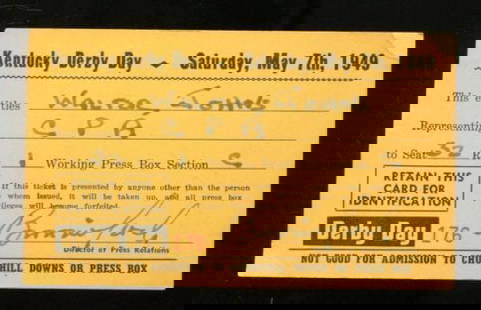 Kentucky Derby Day — Saturday, May 7th, 1949
This entitles Walter Johns
Representing C P A
to Seat 52 Row Working Press Box Section C
If this ticket is presented by anyone other than the person
to whom issued, it will be taken up, and all press box
privileges will become forfeited.
RETAIN THIS
CARD FOR
IDENTIFICATION
Director of Press Relations
Derby Day 176
NOT GOOD FOR ADMISSION TO CHURCHILL DOWNS OR PRESS BOX